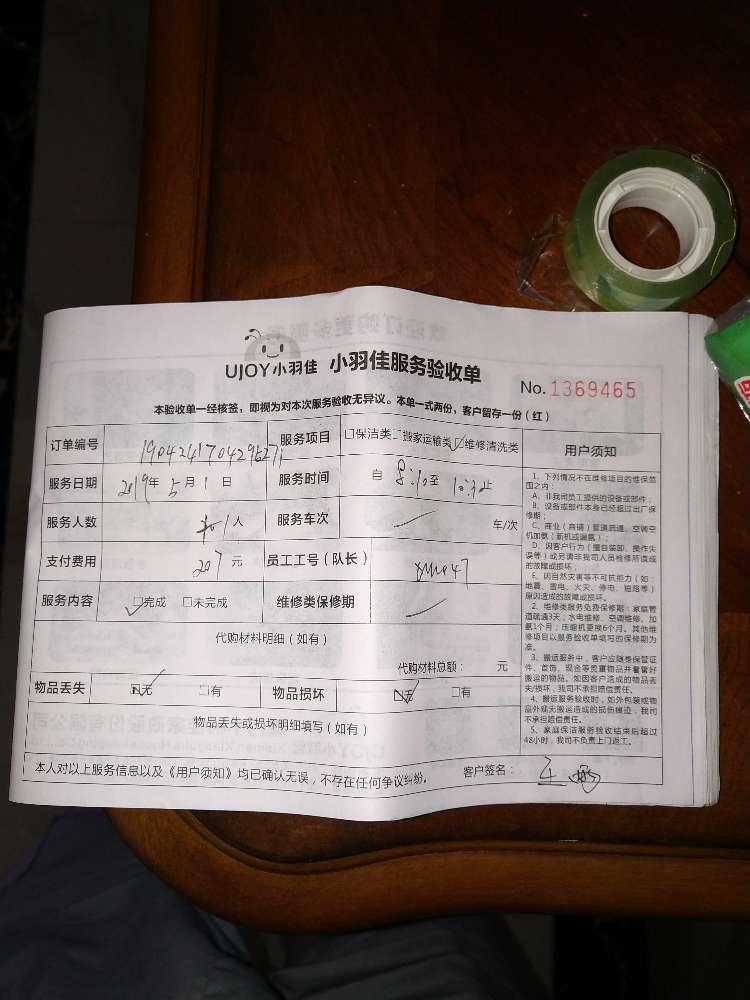 UJOY小羽佳 小羽佳服务验收单
No. 1369465
本验收单一经核签，即视为对本次服务验收无异议。本单一式两份，客户留存一份（红）
订单编号 服务项目 □保洁类 □搬家运输类 □维修清洗类
服务日期 2019年5月1日 服务时间 自 8:10 至
服务人数 1人 服务车次 车/次
支付费用 207元 员工工号（队长）
服务内容 □完成 □未完成 维修类保修期
代购材料明细（如有）
代购材料总额： 元
物品丢失 □无 □有 物品损坏 □无 □有
物品丢失或损坏明细填写（如有）
本人对以上服务信息以及《用户须知》均已确认无误，不存在任何争议纠纷。 客户签名：
用户须知
1、下列情况不在维修项目的维保范
围之内：
A、非我司员工提供的设备或部件；
B、设备或部件本身已经超过出厂保
修期；
C、商业（商铺）管道疏通、空调空
机加氨（新机或漏氨）；
D、因客户行为（擅自装卸、操作失
误等）或另请非我司人员检修所造成
的故障或损坏；
E、因自然灾害等不可抗拒力（如：
地震、雷电、火灾、停电、短路等）
原因造成的故障或损坏。
2、维修类服务免费保修期：家庭管
道疏通3天；水电维修、空调维修、加
氨1个月；压缩机更换6个月。其他维
修项目以服务验收单填写的保修期为
准。
3、搬运服务中，客户应随身保管证
件、首饰、现金等贵重物品并看管好
搬运的物品。如因客户造成的物品丢
失/损坏，我司不承担赔偿责任。
4、搬运服务验收时，如外包装或物
品外观无搬运造成的损伤痕迹，我司
不承担赔偿责任。
5、家庭保洁服务验收结束后超过
48小时，我司不负责上门返工。